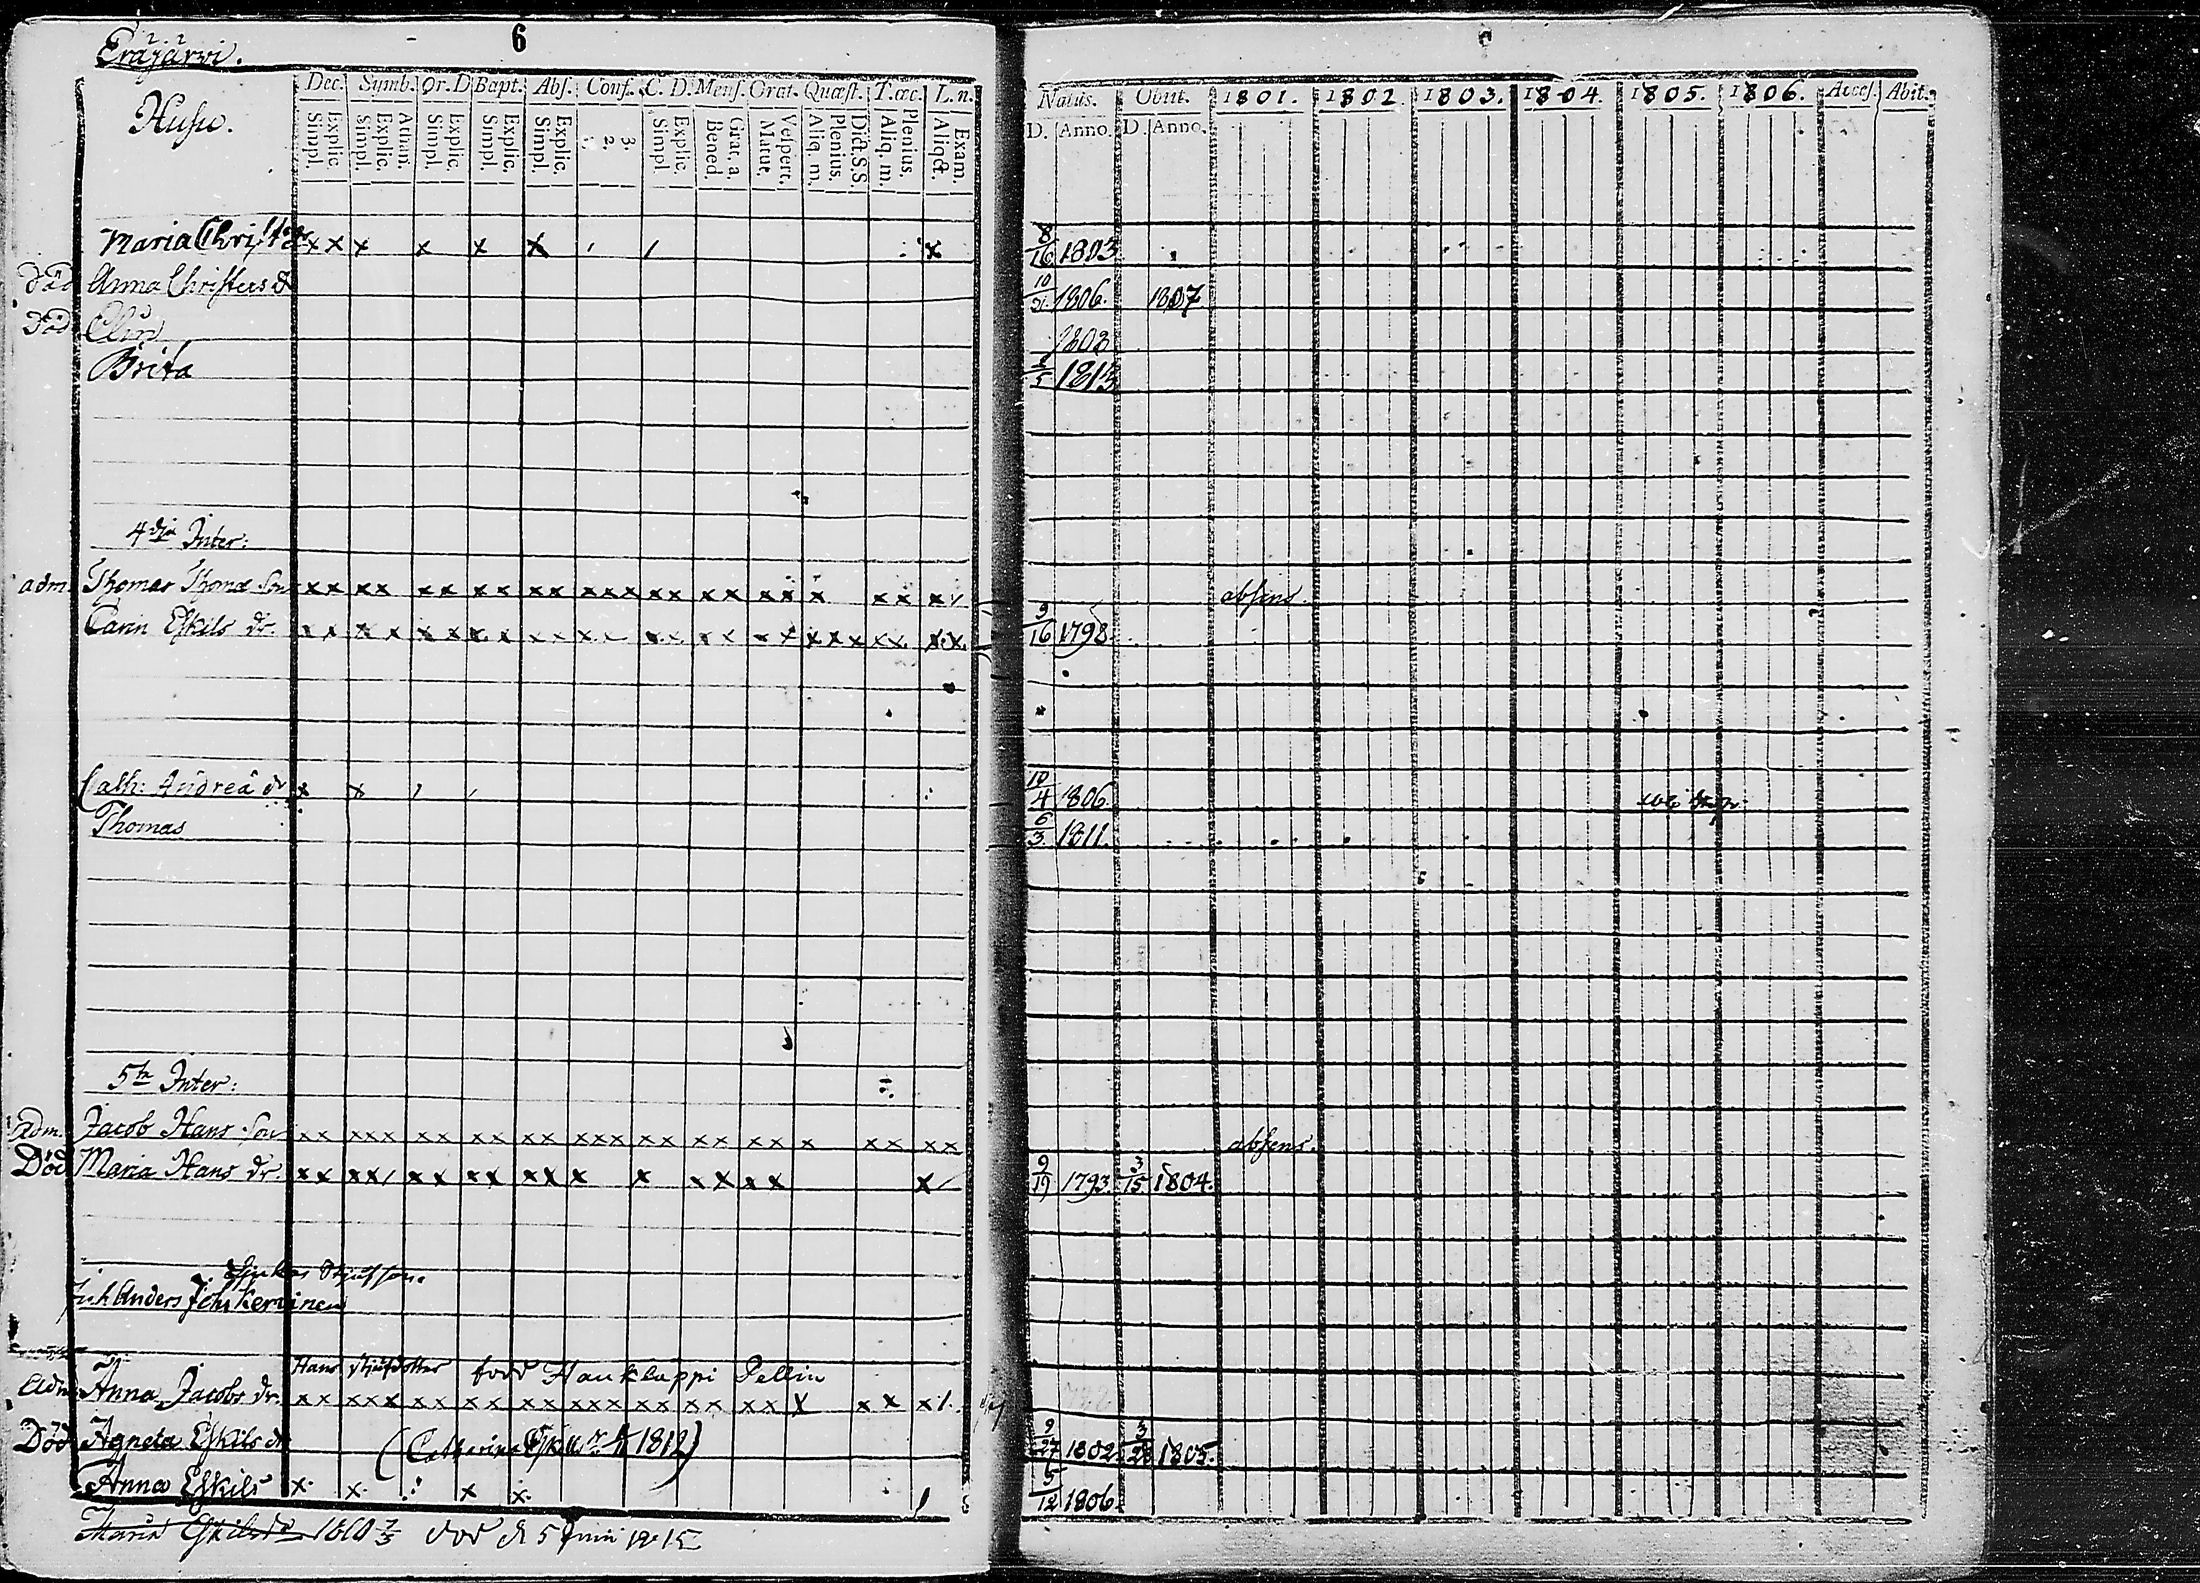 6
Eräjärvi.
Dec. Symb. Or. D Bapt. Abs. Conf. C. D. Mens. Orat. Quæst. T. œc. L. n.
Husu.
Explic. Simpl. Athan. Explic. Simpl. Explic. Simpl. Explic. Simpl. Explic. Simpl. 3. 2. 1. Explic. Simpl. Grat. a. Bened. Vespert. Matut. Dict. S.S. Plenius. Aliq. m. Plenius. Aliq. m. Exam. Aliqd.
Natus. Obiit. 1801. 1802. 1803. 1804. 1805. 1806. Acces. Abit.
D. Anno. D. Anno.
Maria Christ x x x x x x x 8/16 1803
död Anna Christers dr 10/21 1806. 1807
död Elin 1808
Brita 1813
4de Inter:
adm. Thomas Thomæ Son x x x x x x x x x x x x x x x x x x x x x x x x absens
Carin Eskils dr. x x x x x x x x x x x x x x x x x x x x x 9/16 1798.
Cath: Andreæ dr x x 10/4 1806
Thomas 6/3 1811.
5te Inter:
Adm. Jacob Hans Son x x x x x x x x x x x x x x x x x x x x x x x x x absens.
Död Maria Hans dr. x x x x x x x x x x x x x x x x x x x 9/19 1793. 3/15 1804.
Anders
Hans styfdotter född Hauklappi Pellin
Adm Anna Jacobs dr. x x x x x x x x x x x x x x x x x x x x x x x x
Död Agneta Eskils dr (Catharina Eskils dr 1812) 9/27 1802 3/28 1805.
Anna Eskils x x x x 6/12 1806.
Maria Eskils dr 1810 död d 5 Juni 1815